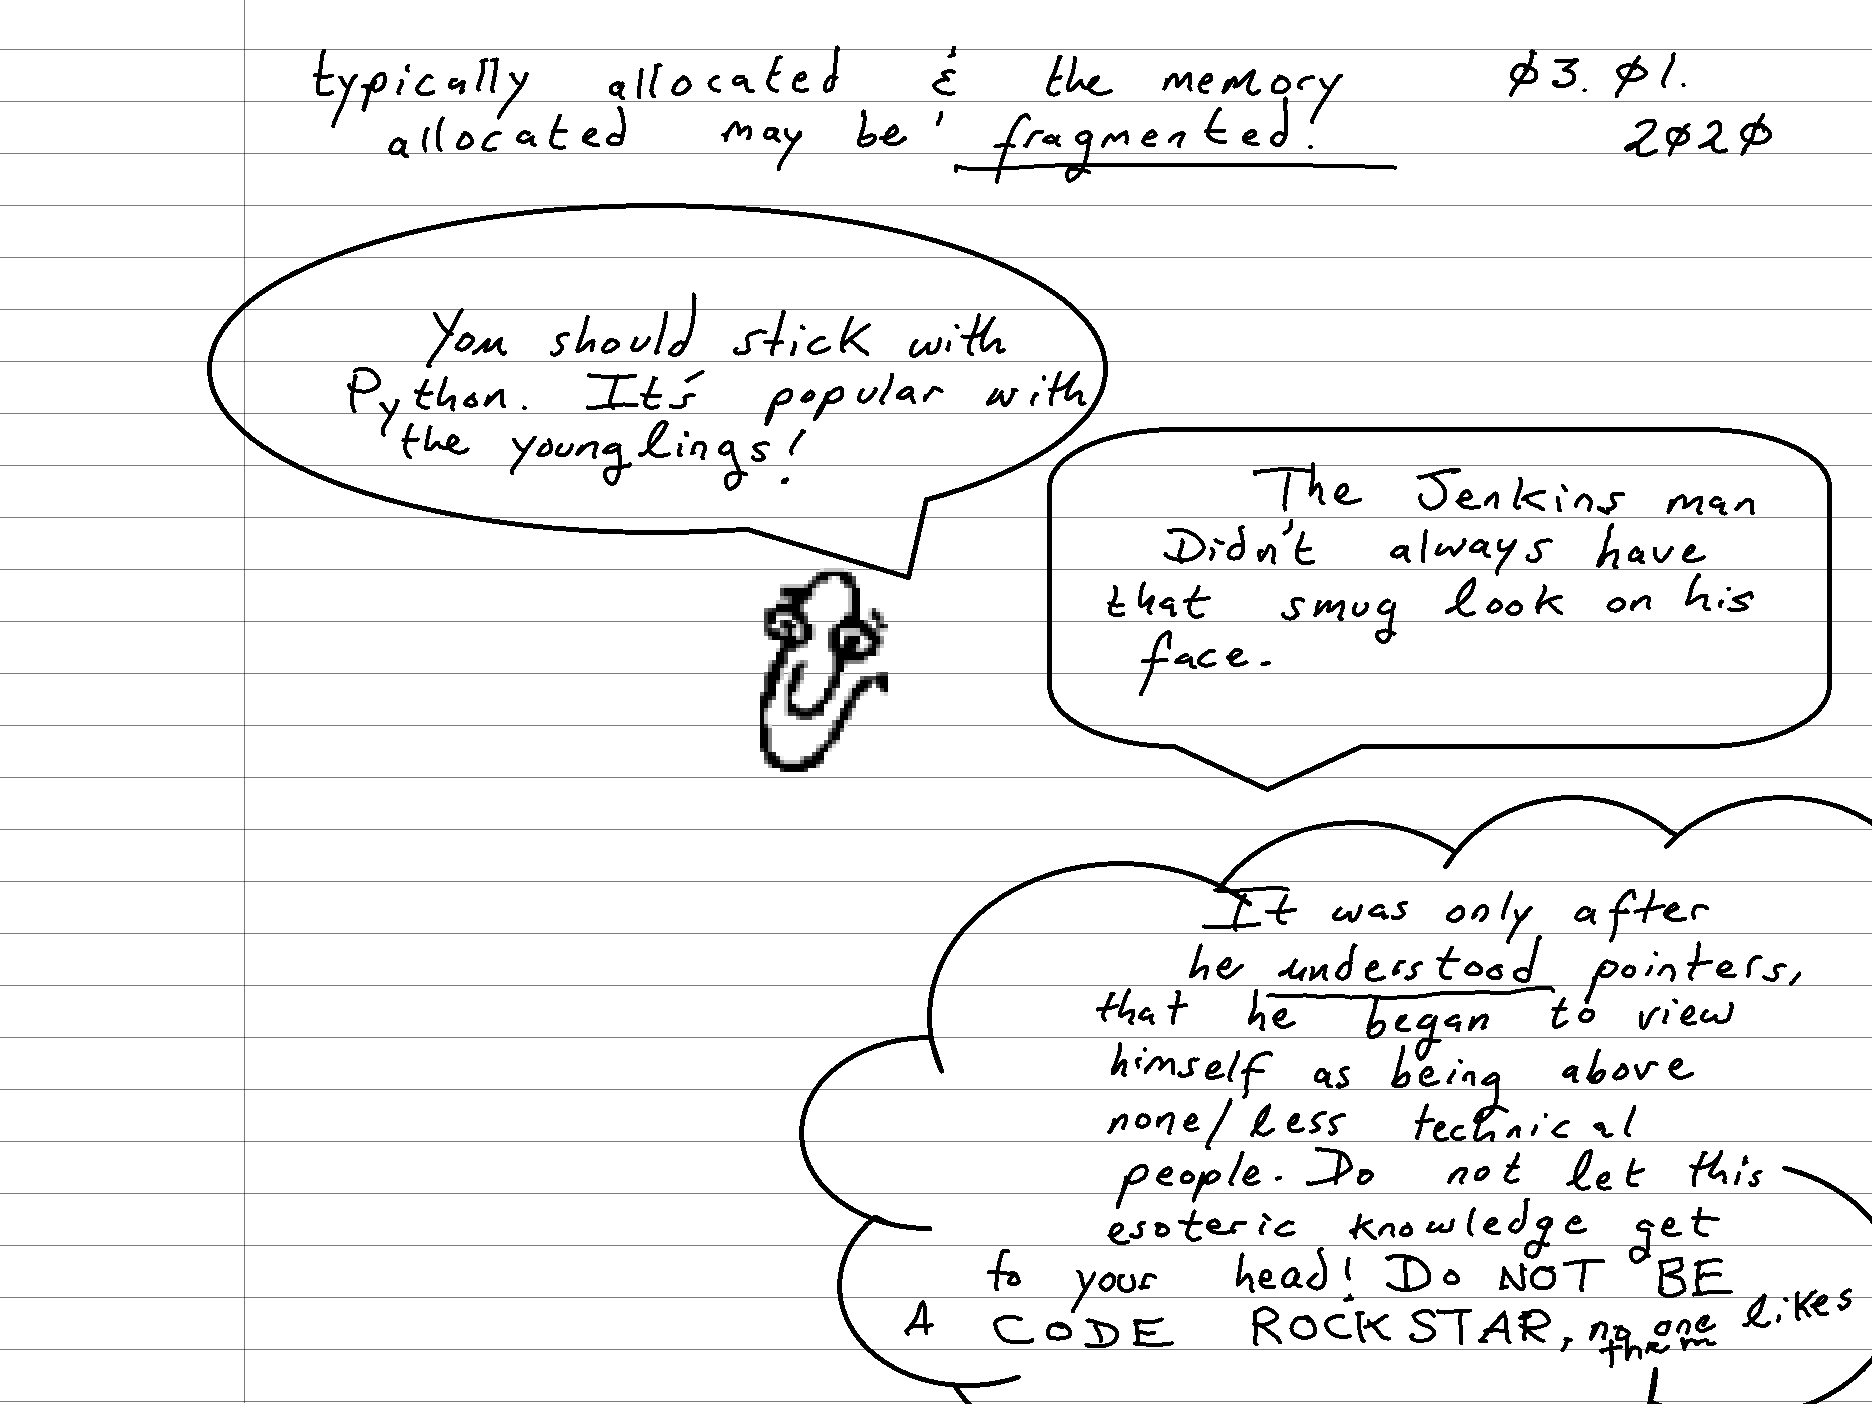 typically allocated & the memory
allocated may be fragmented!
ø3. ø1.
2ø2ø
You should stick with
Python. It's popular with
the younglings!
The Jenkins man
Didn't always have
that smug look on his
face.
It was only after
he understood pointers,
that he began to view
himself as being above
none/less technical
people. Do not let this
esoteric knowledge get
to your head! Do NOT BE
A CODE ROCKSTAR, no one likes
them